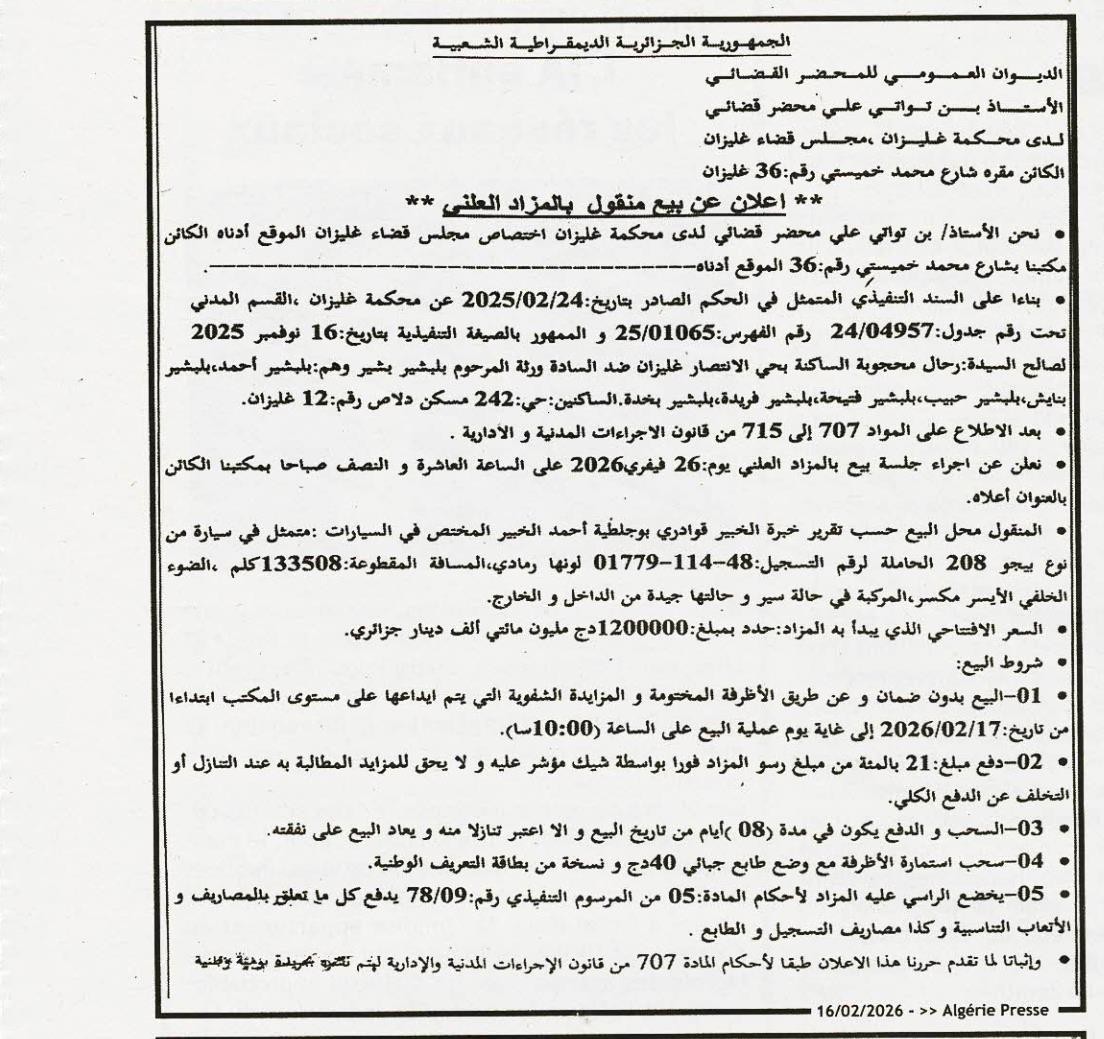 الجمهورية الجزائرية الديمقراطية الشعبية
الديوان العمومي للمحضر القضائي
الأستاذ بن تواتي علي محضر قضائي
لدى محكمة غليزان ،مجلس قضاء غليزان
الكائن مقره شارع محمد خميستي رقم:36 غليزان
** اعلان عن بيع منقول بالمزاد العلني **
• نحن الأستاذ/ بن تواتي علي محضر قضائي لدى محكمة غليزان اختصاص مجلس قضاء غليزان الموقع أدناه الكائن
مكتبنا بشارع محمد خميستي رقم:36 الموقع أدناه-----------------------------------.
• بناءا على السند التنفيذي المتمثل في الحكم الصادر بتاريخ:2025/02/24 عن محكمة غليزان ،القسم المدني
تحت رقم جدول:24/04957 رقم الفهرس:25/01065 و الممهور بالصيغة التنفيذية بتاريخ:16 نوفمبر 2025
لصالح السيدة:رحال محجوبة الساكنة بحي الانتصار غليزان ضد السادة ورثة المرحوم بلبشير بشير وهم:بلبشير أحمد،بلبشير
بنايش،بلبشير حبيب،بلبشير فتيحة،بلبشير فريدة،بلبشير بخدة.الساكنين:حي:242 مسكن دلاص رقم:12 غليزان.
• بعد الاطلاع على المواد 707 إلى 715 من قانون الاجراءات المدنية و الادارية .
• نعلن عن اجراء جلسة بيع بالمزاد العلني يوم:26 فيفري2026 على الساعة العاشرة و النصف صباحا بمكتبنا الكائن
بالعنوان أعلاه.
• المنقول محل البيع حسب تقرير خبرة الخبير قوادري بوجلطية أحمد الخبير المختص في السيارات :متمثل في سيارة من
نوع بيجو 208 الحاملة لرقم التسجيل:48-114-01779 لونها رمادي،المسافة المقطوعة:133508كلم ،الضوء
الخلفي الأيسر مكسر،المركبة في حالة سير و حالتها جيدة من الداخل و الخارج.
• السعر الافتتاحي الذي يبدأ به المزاد:حدد بمبلغ:1200000دج مليون مائتي ألف دينار جزائري.
• شروط البيع:
• 01-البيع بدون ضمان و عن طريق الأظرفة المختومة و المزايدة الشفوية التي يتم ايداعها على مستوى المكتب ابتداءا
من تاريخ:2026/02/17 إلى غاية يوم عملية البيع على الساعة (10:00سا).
• 02-دفع مبلغ:21 بالمئة من مبلغ رسو المزاد فورا بواسطة شيك مؤشر عليه و لا يحق للمزايد المطالبة به عند التنازل أو
التخلف عن الدفع الكلي.
• 03-السحب و الدفع يكون في مدة (08 )أيام من تاريخ البيع و الا اعتبر تنازلا منه و يعاد البيع على نفقته.
• 04-سحب استمارة الأظرفة مع وضع طابع جبائي 40دج و نسخة من بطاقة التعريف الوطنية.
• 05-يخضع الراسي عليه المزاد لأحكام المادة:05 من المرسوم التنفيذي رقم:78/09 يدفع كل ما تعلق بالمصاريف و
الأتعاب التناسبية و كذا مصاريف التسجيل و الطابع .
• وإثباتا لما تقدم حررنا هذا الاعلان طبقا لأحكام المادة 707 من قانون الإجراءات المدنية والإدارية ليتم نشره بجريدة يومية وطنية
16/02/2026 - >> Algérie Presse